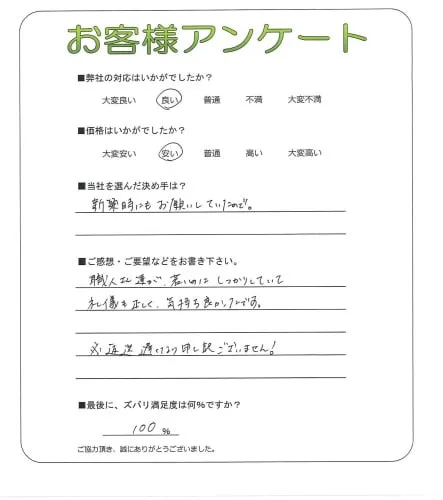 お客様アンケート
■弊社の対応はいかがでしたか？
大変良い 良い 普通 不満 大変不満
■価格はいかがでしたか？
大変安い 安い 普通 高い 大変高い
■当社を選んだ決め手は？
新築時にもお願いしていたので。
■ご感想・ご要望などをお書き下さい。
職人さん達が、若いのに しっかりしていて
礼儀も正しく、気持ち良かったです。
返送遅くなり申し訳ございません!
■最後に、ズバリ満足度は何%ですか？
100 %
ご協力頂き、誠にありがとうございました。